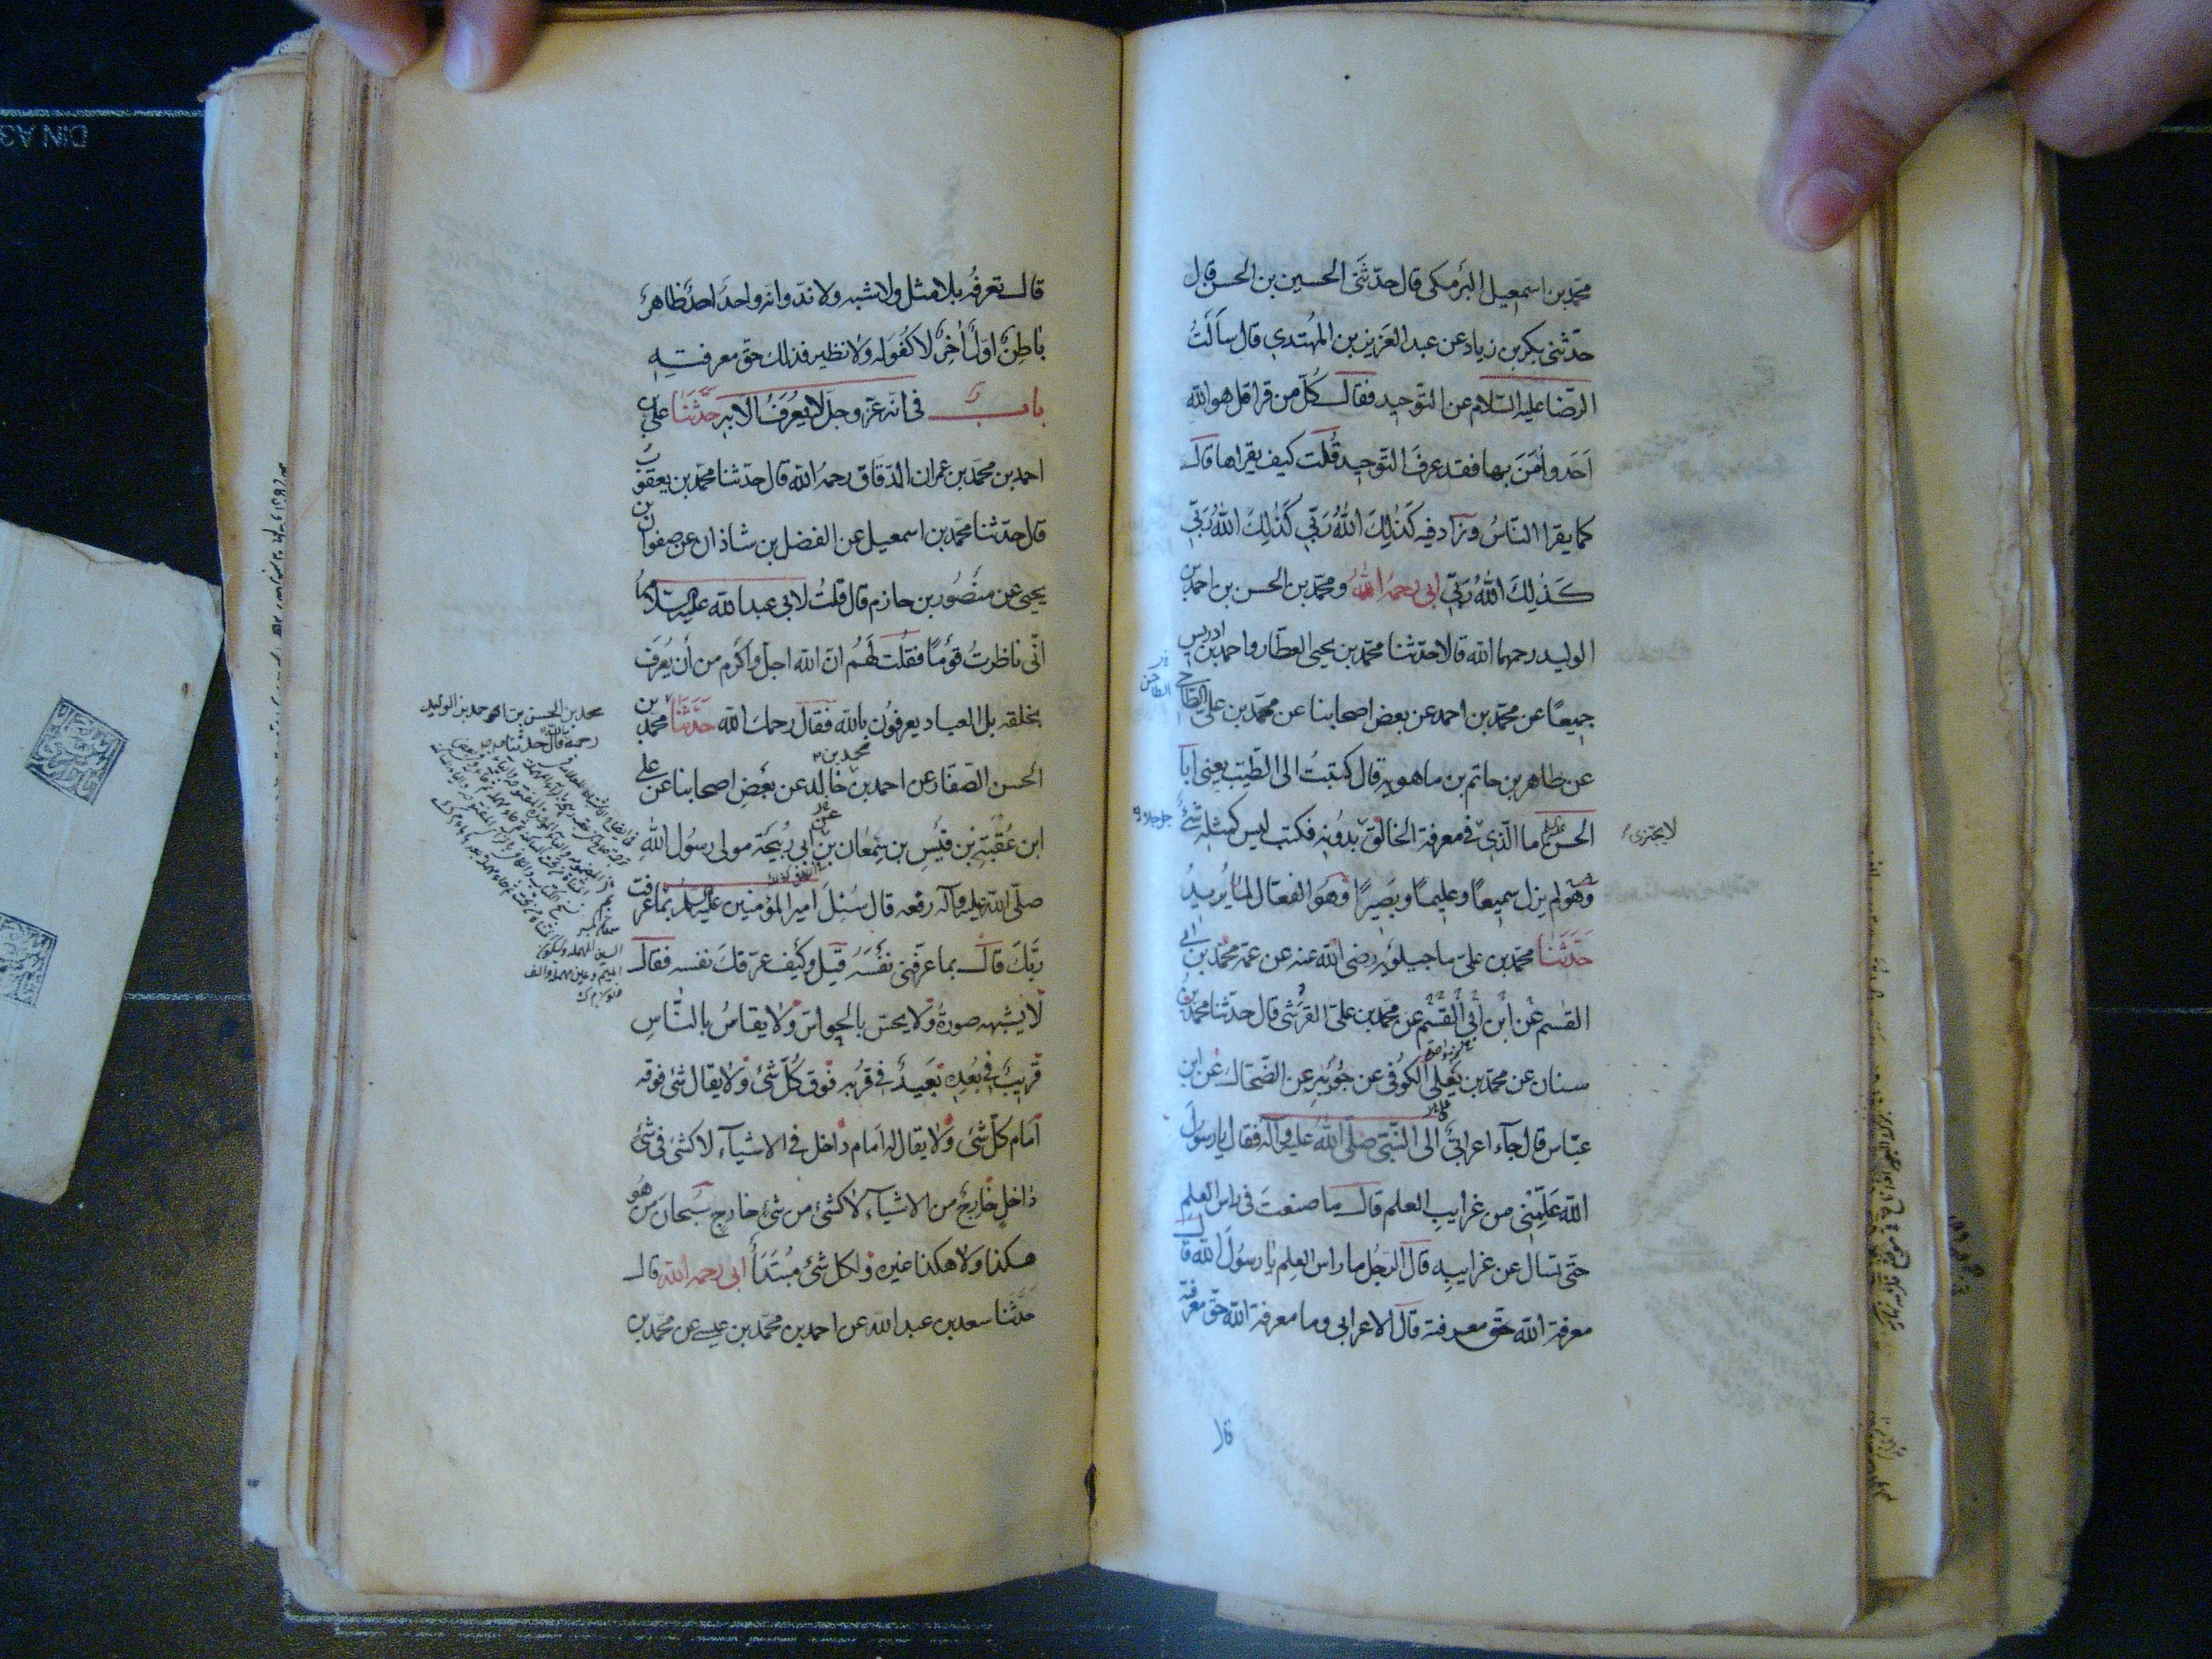 محمد بن اسمعيل البرمكى قال حدثنى الحسين بن الحسن قال
حدثنى بكر بن زياد عن عبد العزيز بن المهتدي قال سألت
الرضا عليه السلام عن التوحيد فقال كل من قرا قل هو الله
احد وامن بها فقد عرف التوحيد قلت كيف يقراها قال
كما يقرا الناس وزاد فيه كذلك الله ربي كذلك الله ربي
كذلك الله ربي ابى رحمه الله ومحمد بن الحسن بن احمد بن
الوليد رحمهما الله قالا حدثنا محمد بن يحيى العطار واحمد بن ادريس
جميعا عن محمد بن احمد عن بعض اصحابنا عن محمد بن على الطاحي
عن طاهر بن حاتم بن ماهويه قال كتبت الى الطيب يعنى ابا
الحسن ع ما الذي في معرفة الخالق بدونه فكتب ليس كمثله شئ
لا يجتزئ
وهو لم يزل سميعا وعليما وبصيرا وهو الفعال لما يريد
حدثنا محمد بن على ماجيلويه رضى الله عنه عن عمه محمد بن ابى
القسم عن ابن ابى القسم عن محمد بن على القرشى قال حدثنا محمد بن
سنان عن محمد بن يعلى الكوفى عن جويبر عن الضحاك عن ابن
عباس قال جآء اعرابي الى النبى صلى الله عليه وآله فقال يا رسول
الله علمنى من غرايب العلم قال ما صنعت فى راس العلم
حتى تسال عن غرايبه قال الرجل ما راس العلم يا رسول الله قال
معرفة الله حق معرفته قال الاعرابى وما معرفة الله حق معرفته
قال
قال تعرفه بلا مثل ولا شبه ولا ند وانه واحد احد ظاهر
باطن اول آخر لا كفو له ولا نظير فذلك حق معرفته
باب فى انه عز وجل لا يعرف الا به حدثنا على بن
احمد بن محمد بن عمران الدقاق رحمه الله قال حدثنا محمد بن يعقوب
قال حدثنا محمد بن اسمعيل عن الفضل بن شاذان عن صفوان بن
يحيى عن منصور بن حازم قال قلت لابى عبد الله عليه السلام
انى ناظرت قوما فقلت لهم ان الله اجل واكرم من أن يعرف
بخلقه بل العباد يعرفون بالله فقال رحمك الله حدثنا محمد بن
محمد بن الحسن بن احمد بن الوليد
رحمه الله قال حدثنا محمد بن
الحسن الصفار عن احمد بن محمد بن خالد عن بعض اصحابنا عن على
ابن عقبة بن قيس بن سمعان بن ابى ربيحة مولى رسول الله
صلى الله عليه وآله رفعه قال سئل امير المؤمنين عليه السلام بما عرفت
ربك قال بما عرفنى نفسه قيل وكيف عرفك نفسه فقال
لا يشبهه صورة ولا يحس بالحواس ولا يقاس بالناس
قريب في بعده بعيد في قربه فوق كل شئ ولا يقال شئ فوقه
امام كل شئ ولا يقال له امام داخل فى الاشيآء لا كشئ فى شئ
داخل خارج من الاشيآء لا كشئ من شئ خارج سبحان من هو
هكذا ولا هكذا غيره ولكل شئ مبتدأ ابى رحمه الله قال
حدثنا سعد بن عبد الله عن احمد بن محمد بن عيسى عن محمد بن